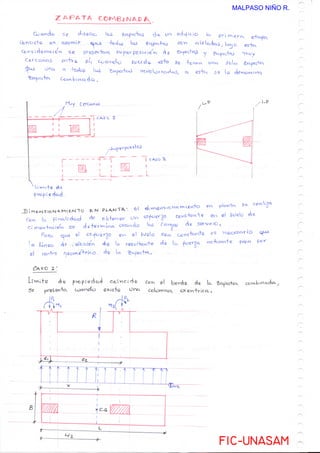 MALPASO NIÑO R.
ZAPATA COMBINADA
Cuando se diseña las zapatas de un edificio la primera etapa
consiste en asumir que todas las zapatas son aisladas, bajo esta
consideración se presentan superposición de zapatas y zapatas muy
cercanas entre sí, cuando sucede esto se toman una sola zapata
que una a todas las zapatas involucradas a esto se lo denomina
zapata combinada.
Muy Cercanas
L.P
L.P
CASO I
superpuestas
CASO 2
Limite de
propiedad
DIMENSIONAMIENTO EN PLANTA: El dimensionamiento en planta se realiza
con la finalidad de obtener un esfuerzo resistente en el suelo de
cimentación se determina usando las cargas de servicio,
Para que el esfuerzo en el suelo sea constante es necesario que
la línea de acción de la resultante de la fuerza actuante pase por
el centro geométrico de la zapata.
CASO 1:
Límite de propiedad coincide con el borde de la zapata combinada,
se presenta cuando existe una columna excéntrica.
P1
P2
M1
M2
R
e1
e2
x
B
C.G
L
L/2
FIC-UNASAM